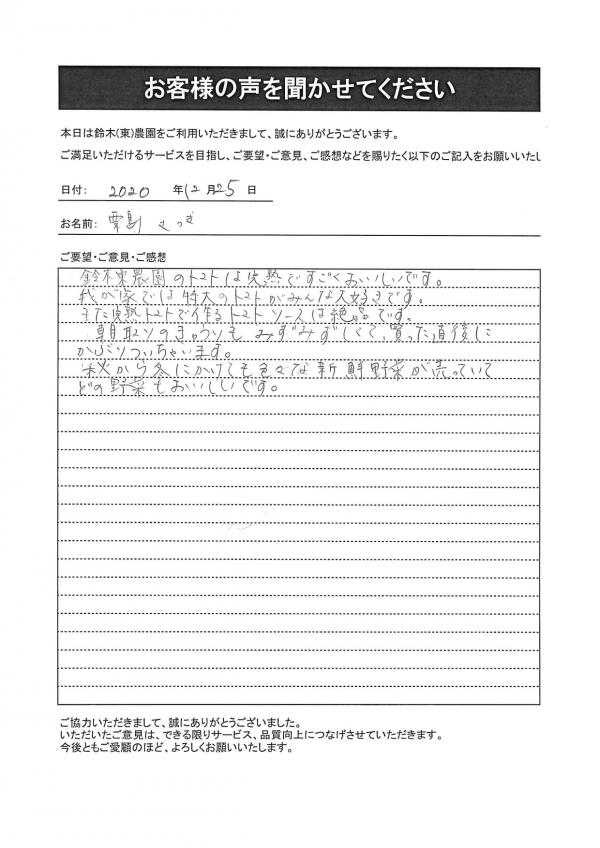 お客様の声を聞かせてください
本日は鈴木(東)農園をご利用いただきまして、誠にありがとうございます。
ご満足いただけるサービスを目指し、ご要望・ご意見、ご感想などを賜りたく以下のご記入をお願いいたし
日付： 2020 年 12 月 25 日
お名前： 栗島 さつき
ご要望・ご意見・ご感想
鈴木東農園のトマトは完熟ですごくおいしいです。
我が家では特大のトマトがみんな大好きです。
また完熟トマトで作るトマトソースは絶品です。
朝取りのきゅうりもみずみずしくて、買った直後に
かぶりついちゃいます。
秋から冬にかけても色々な新鮮野菜が売っていて
どの野菜もおいしいです。
ご協力いただきまして、誠にありがとうございました。
いただいたご意見は、できる限りサービス、品質向上につなげさせていただきます。
今後ともご愛顧のほど、よろしくお願いいたします。